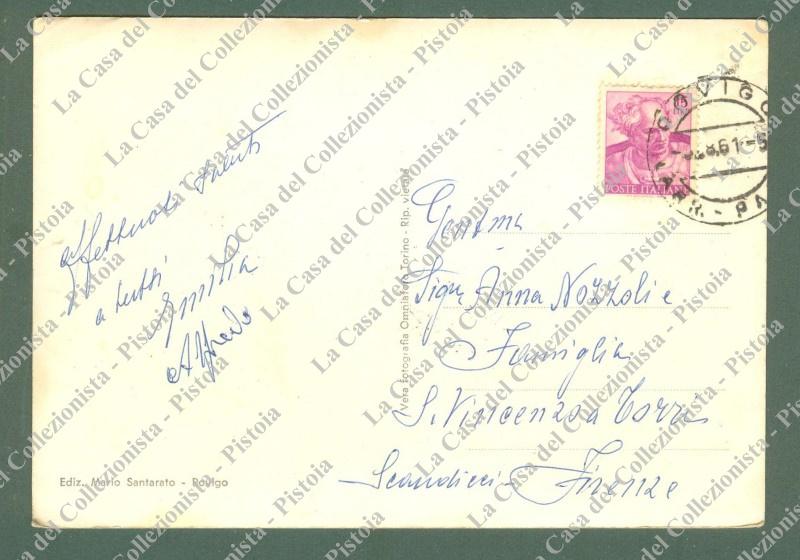 affettuosi saluti
a tutti
Emilia
Alfredo
Ediz. Mario Santarato - Rovigo
Vera fotografia Omniafoto Torino - Rip. vietata
15
POSTE ITALIANE
ROVIGO
.8.61-5
ARR. - PA
Gent.ma
Sig.ra Anna Nozzoli e
Famiglia
S. Vincenzo a Torri
Scandicci - Firenze
La Casa del Collezionista - Pistoia